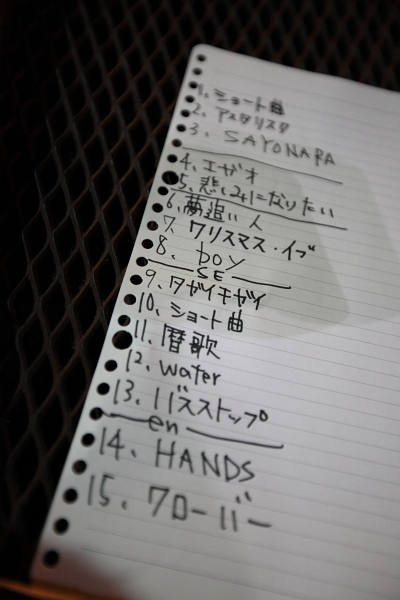 1. ショート曲
2. アスタリスク
3. SAYONARA
4. エガオ
5. 悲しみになりたい
6. 夢追い人
7. クリスマス・イブ
8. boy
SE
9. ワガイモガイ
10. ショート曲
11. 暦歌
12. water
13. バスストップ
en
14. HANDS
15. クローバー